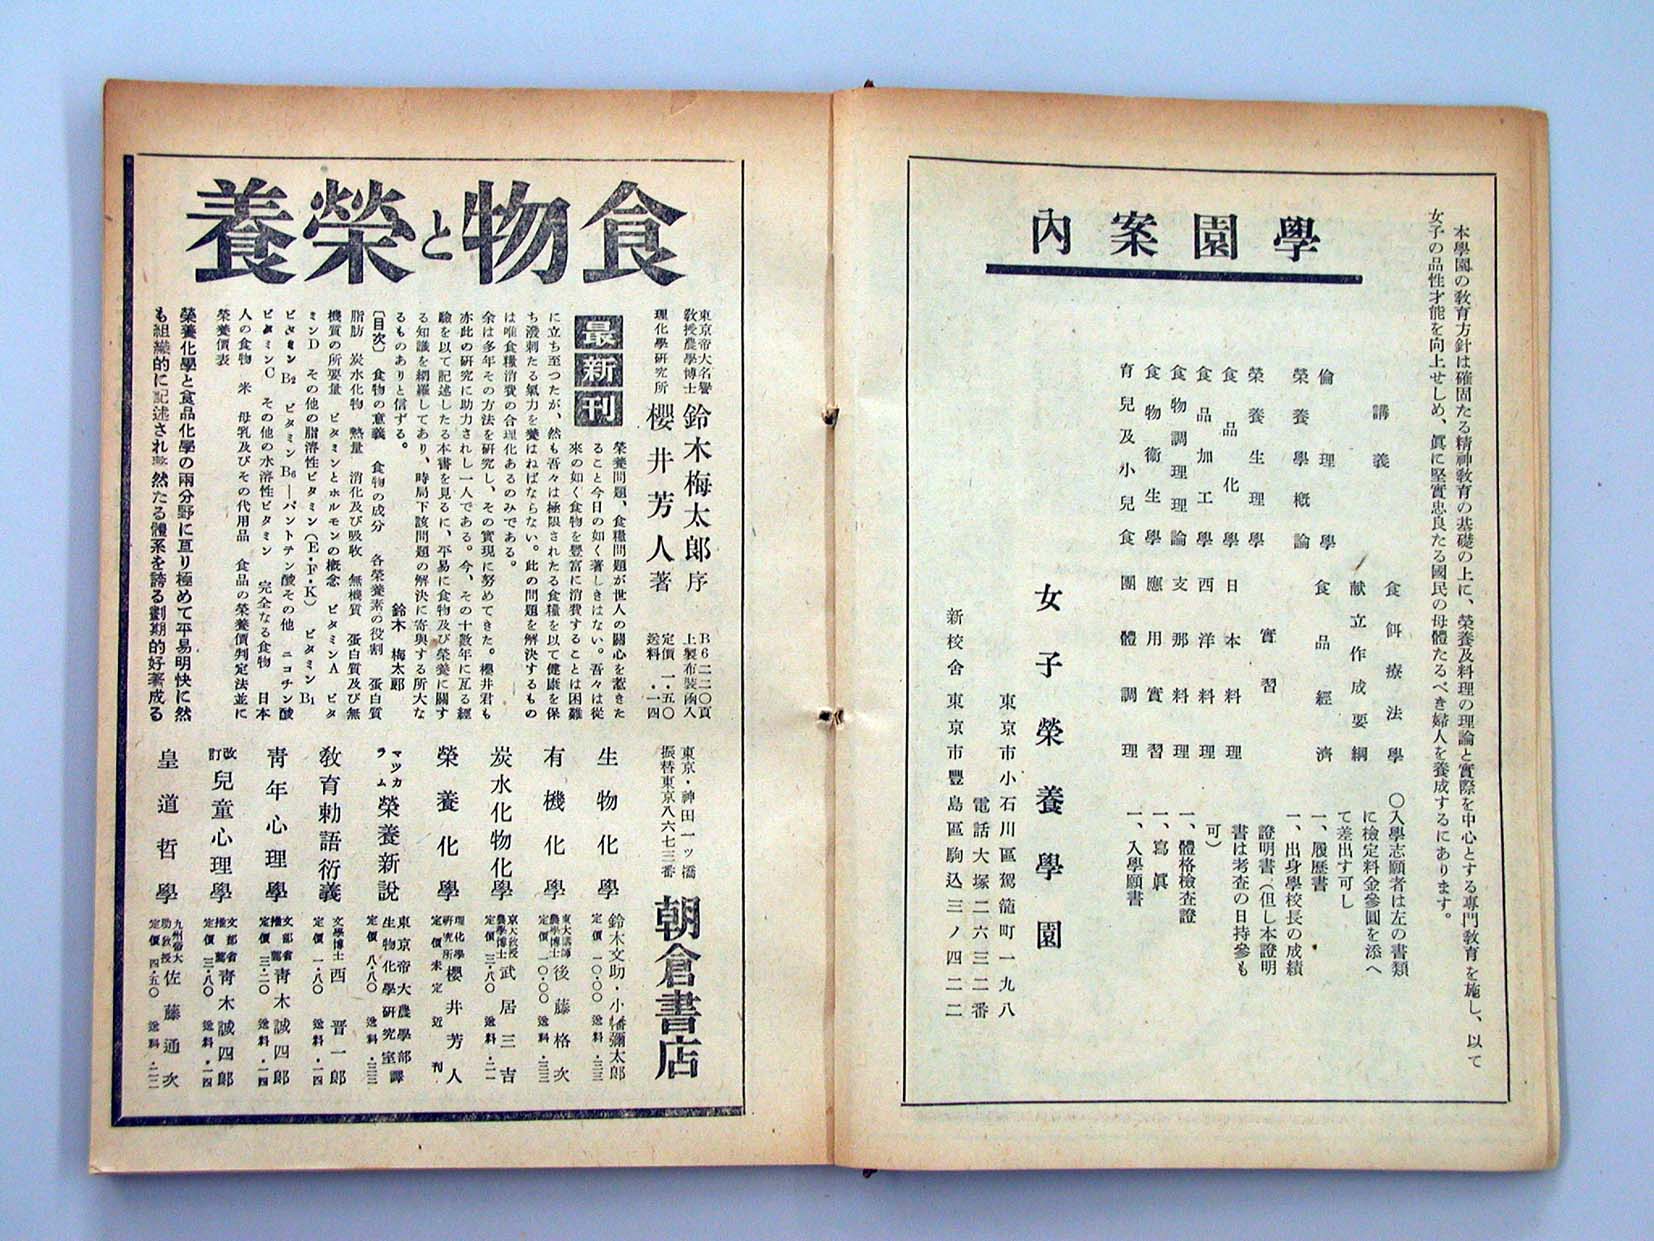 學園案內
本學園の教育方針は確固たる精神教育の基礎の上に、榮養及料理の理論と實際を中心とする專門教育を施し、以て
女子の品性才能を向上せしめ、眞に堅實忠良たる國民の母體たるべき婦人を養成するにあります。
講義
倫理學
榮養學概論
榮養生理學
食品化學
食品加工學
食物調理理論
食物衞生學
育兒及小兒食
食餌療法學
献立作成要綱
食品經濟
實習
日本料理
西洋料理
支那料理
應用實習
團體調理
○入學志願者は左の書類
に檢定料金參圓を添へ
て差出す可し
一、履歷書
一、出身學校長の成績
證明書(但し本證明
書は考査の日持參も
可)
一、體格檢査證
一、寫眞
一、入學願書
女子榮養學園
東京市小石川區駕籠町一九八
電話大塚二六三二番
新校舍 東京市豐島區駒込三ノ四二二
食物と榮養
東京帝大名譽
教授農學博士 鈴木梅太郎 序
理化學研究所 櫻井芳人 著
B6二二〇頁
上製布裝函入
定價 一・五〇
送料 ・一四
最新刊
榮養問題、食糧問題が世人の關心を惹きた
ること今日の如く著しきはない。吾々は從
來の如く食物を豐富に消費することは困難
に立ち至つたが、然も吾々は極限されたる食糧を以て健康を保
ち潑剌たる氣力を養はねばならない。此の問題を解決するもの
は唯食糧消費の合理化あるのみである。
余は多年その方法を研究し、その實現に努めてきた。櫻井君も
亦此の研究に助力されし一人である。今、その十數年に亙る經
驗を以て記述したる本書を見るに、平易に食物及び榮養に關す
る知識を網羅してあり、時局下該問題の解決に寄與する所大な
るものありと信ずる。
鈴木 梅太郎
〔目次〕 食物の意義 食物の成分 各榮養素の役割 蛋白質
脂肪 炭水化物 熱量 消化及び吸收 無機質 蛋白質及び無
機質の所要量 ビタミンとホルモンの概念 ビタミンA ビタ
ミンD その他の脂溶性ビタミン(E・F・K) ビタミンB1
ビタミンB2 ビタミンB6―パントテン酸その他 ニコチン酸
ビタミンC その他の水溶性ビタミン 完全なる食物 日本
人の食物 米 母乳及びその代用品 食品の榮養價判定法並に
榮養價表
榮養化學と食品化學の兩分野に亙り極めて平易明快に然
も組織的に記述され整然たる體系を誇る劃期的好著成る
東京・神田一ッ橋
振替東京八六七三番
朝倉書店
生物化學 鈴木文助・小幡彌太郎 定價 一〇・〇〇 送料 ・三三
有機化學 東大講師 農學博士 後藤格次 定價 一〇・〇〇 送料 ・三三
炭水化物化學 京大敎授 農學博士 武居三吉 定價 三・八〇 送料 ・二一
榮養化學 理化學研究所 櫻井芳人 定價未定 近刊
マッカラム 榮養新說 東京帝大農學部 生物化學研究室譯 定價 八・八〇 送料 ・三三
敎育勅語衍義 文學博士 西晋一郎 定價 一・八〇 送料 ・一四
靑年心理學 文部省推薦 靑木誠四郎 定價 三・二〇 送料 ・一四
改訂 兒童心理學 文部省推薦 靑木誠四郎 定價 三・八〇 送料 ・一四
皇道哲學 九州帝大助敎授 佐藤通次 定價 四・五〇 送料 ・二二